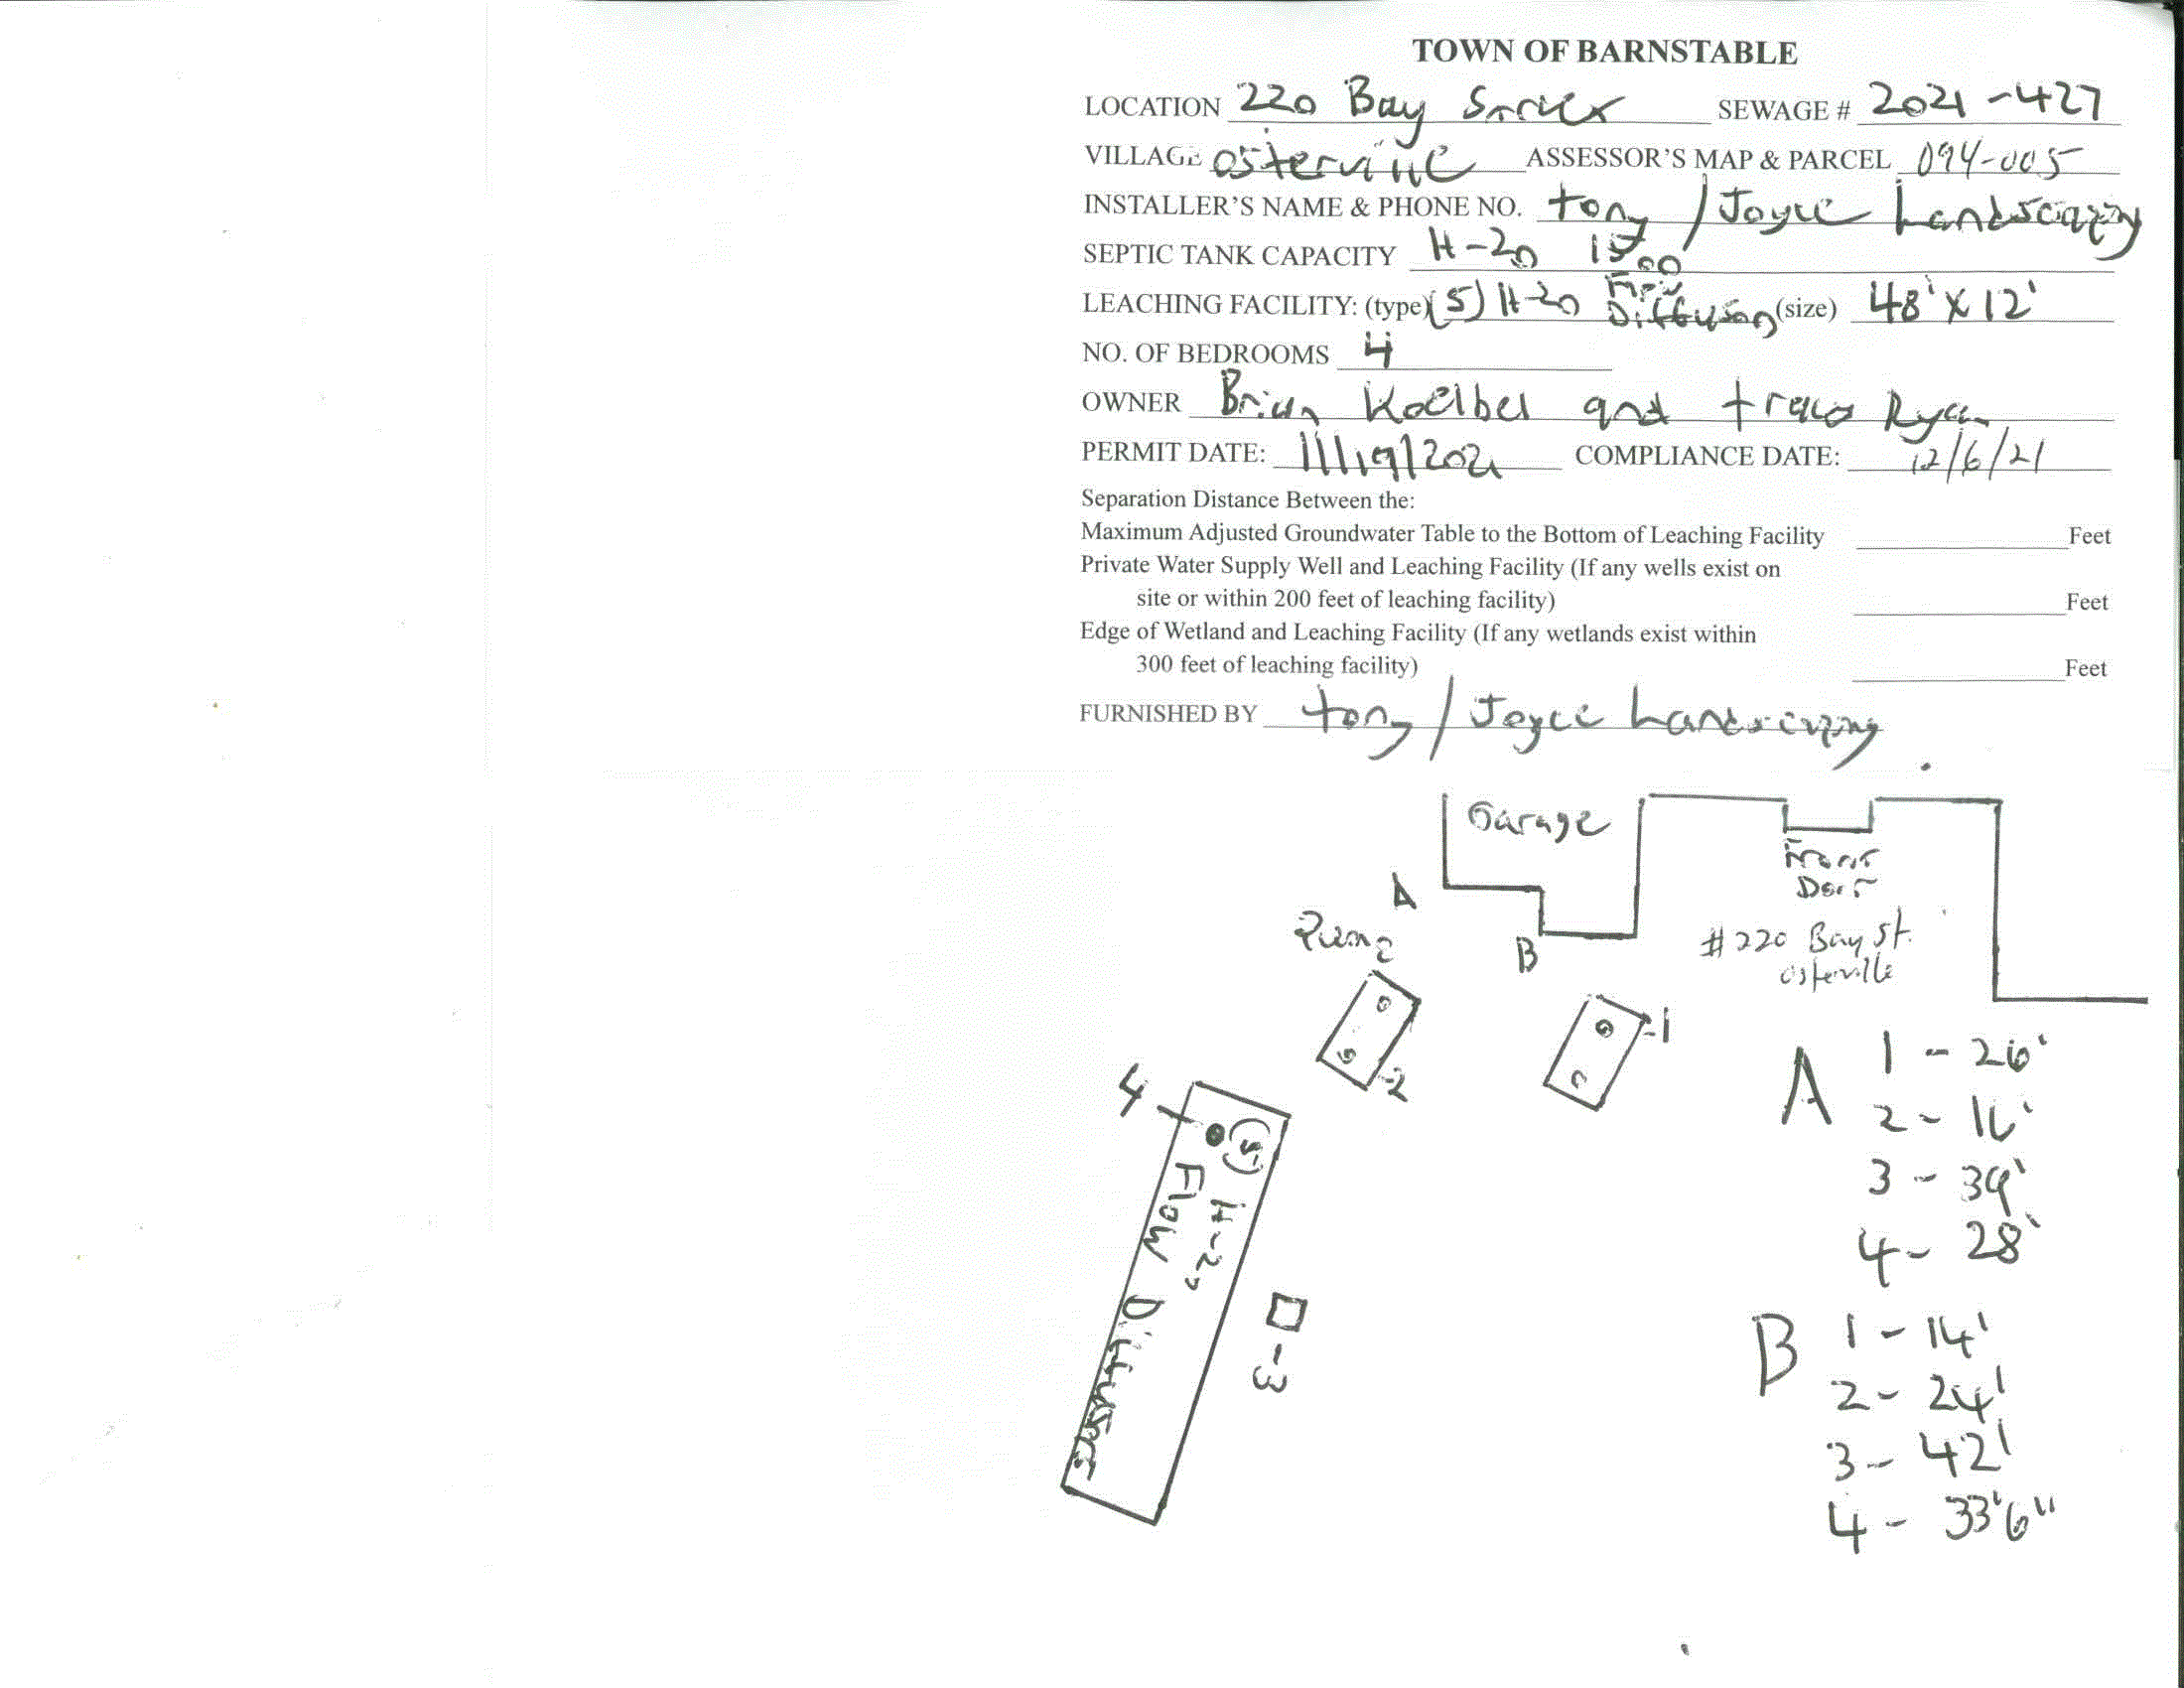 TOWN OF BARNSTABLE
LOCATION 220 Bay Street SEWAGE # 2021-427
VILLAGE Osterville ASSESSOR'S MAP & PARCEL 094-005
INSTALLER'S NAME & PHONE NO. Tony / Joyce Landscaping
SEPTIC TANK CAPACITY H-20 1500
LEACHING FACILITY: (type) (5) H-20 Flow Diffusors (size) 48' x 12'
NO. OF BEDROOMS 4
OWNER Brian Koelbel and Ryan
PERMIT DATE: 11/19/2021 COMPLIANCE DATE: 12/6/21
Separation Distance Between the:
Maximum Adjusted Groundwater Table to the Bottom of Leaching Facility Feet
Private Water Supply Well and Leaching Facility (If any wells exist on
site or within 200 feet of leaching facility) Feet
Edge of Wetland and Leaching Facility (If any wetlands exist within
300 feet of leaching facility) Feet
FURNISHED BY Tony / Joyce Landscaping
Garage
Front
Door
A
Pump
B
#220 Bay St.
Osterville
-1
-2
4
(5) H-20
Flow Diffusors
-3
A 1 - 26'
2 - 16'
3 - 39'
4 - 28'
B 1 - 14'
2 - 24'
3 - 42'
4 - 33'6"